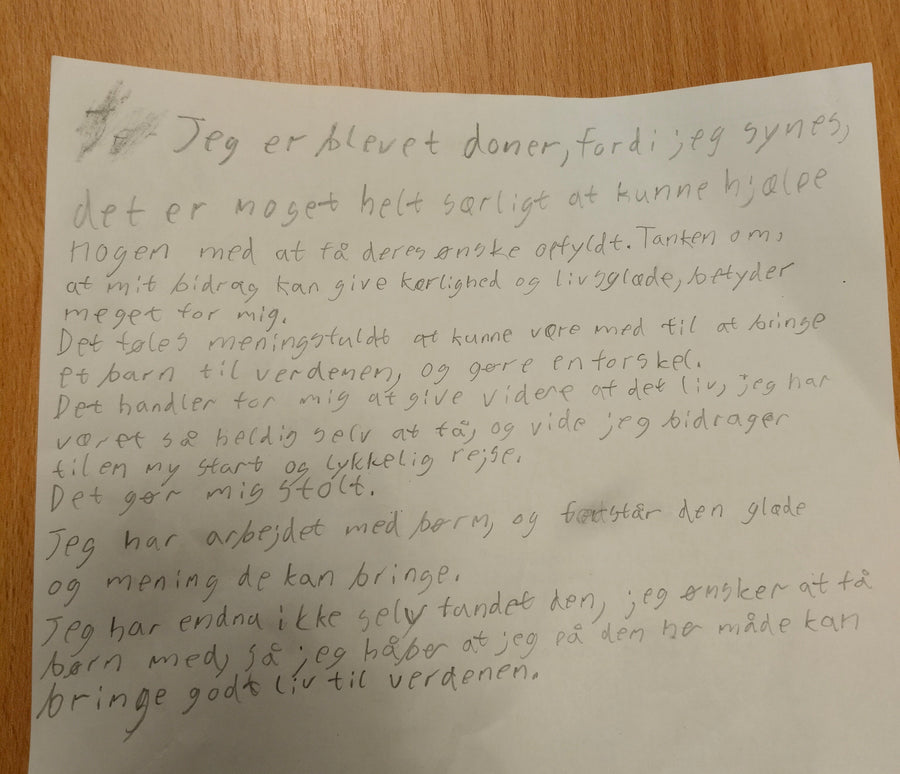 Jeg er blevet doner, fordi jeg synes,
det er noget helt særligt at kunne hjælpe
nogen med at få deres ønske opfyldt. Tanken om,
at mit bidrag kan give kærlighed og livsglæde, betyder
meget for mig.
Det føles meningsfuldt at kunne være med til at bringe
et barn til verdenen, og gøre en forskel.
Det handler for mig at give videre af det liv, jeg har
været så heldig selv at få, og vide jeg bidrager
til en ny start og lykkelig rejse.
Det gør mig stolt.
Jeg har arbejdet med børn, og forstår den glæde
og mening de kan bringe.
Jeg har endna ikke selv fandet den, jeg ønsker at få
børn med, så jeg håber at jeg på den he måde kan
bringe godt liv til verdenen.